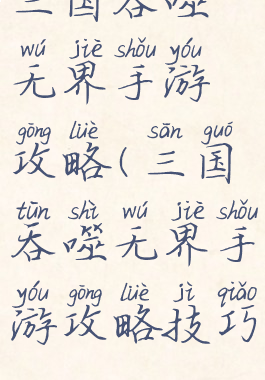 三国吞噬
wú jiè shǒu yóu
无界手游
gōng lüè sān guó
攻略(三国
tūn shì wú jiè shǒu
吞噬无界手
yóu gōng lüè jì qiǎo
游攻略技巧